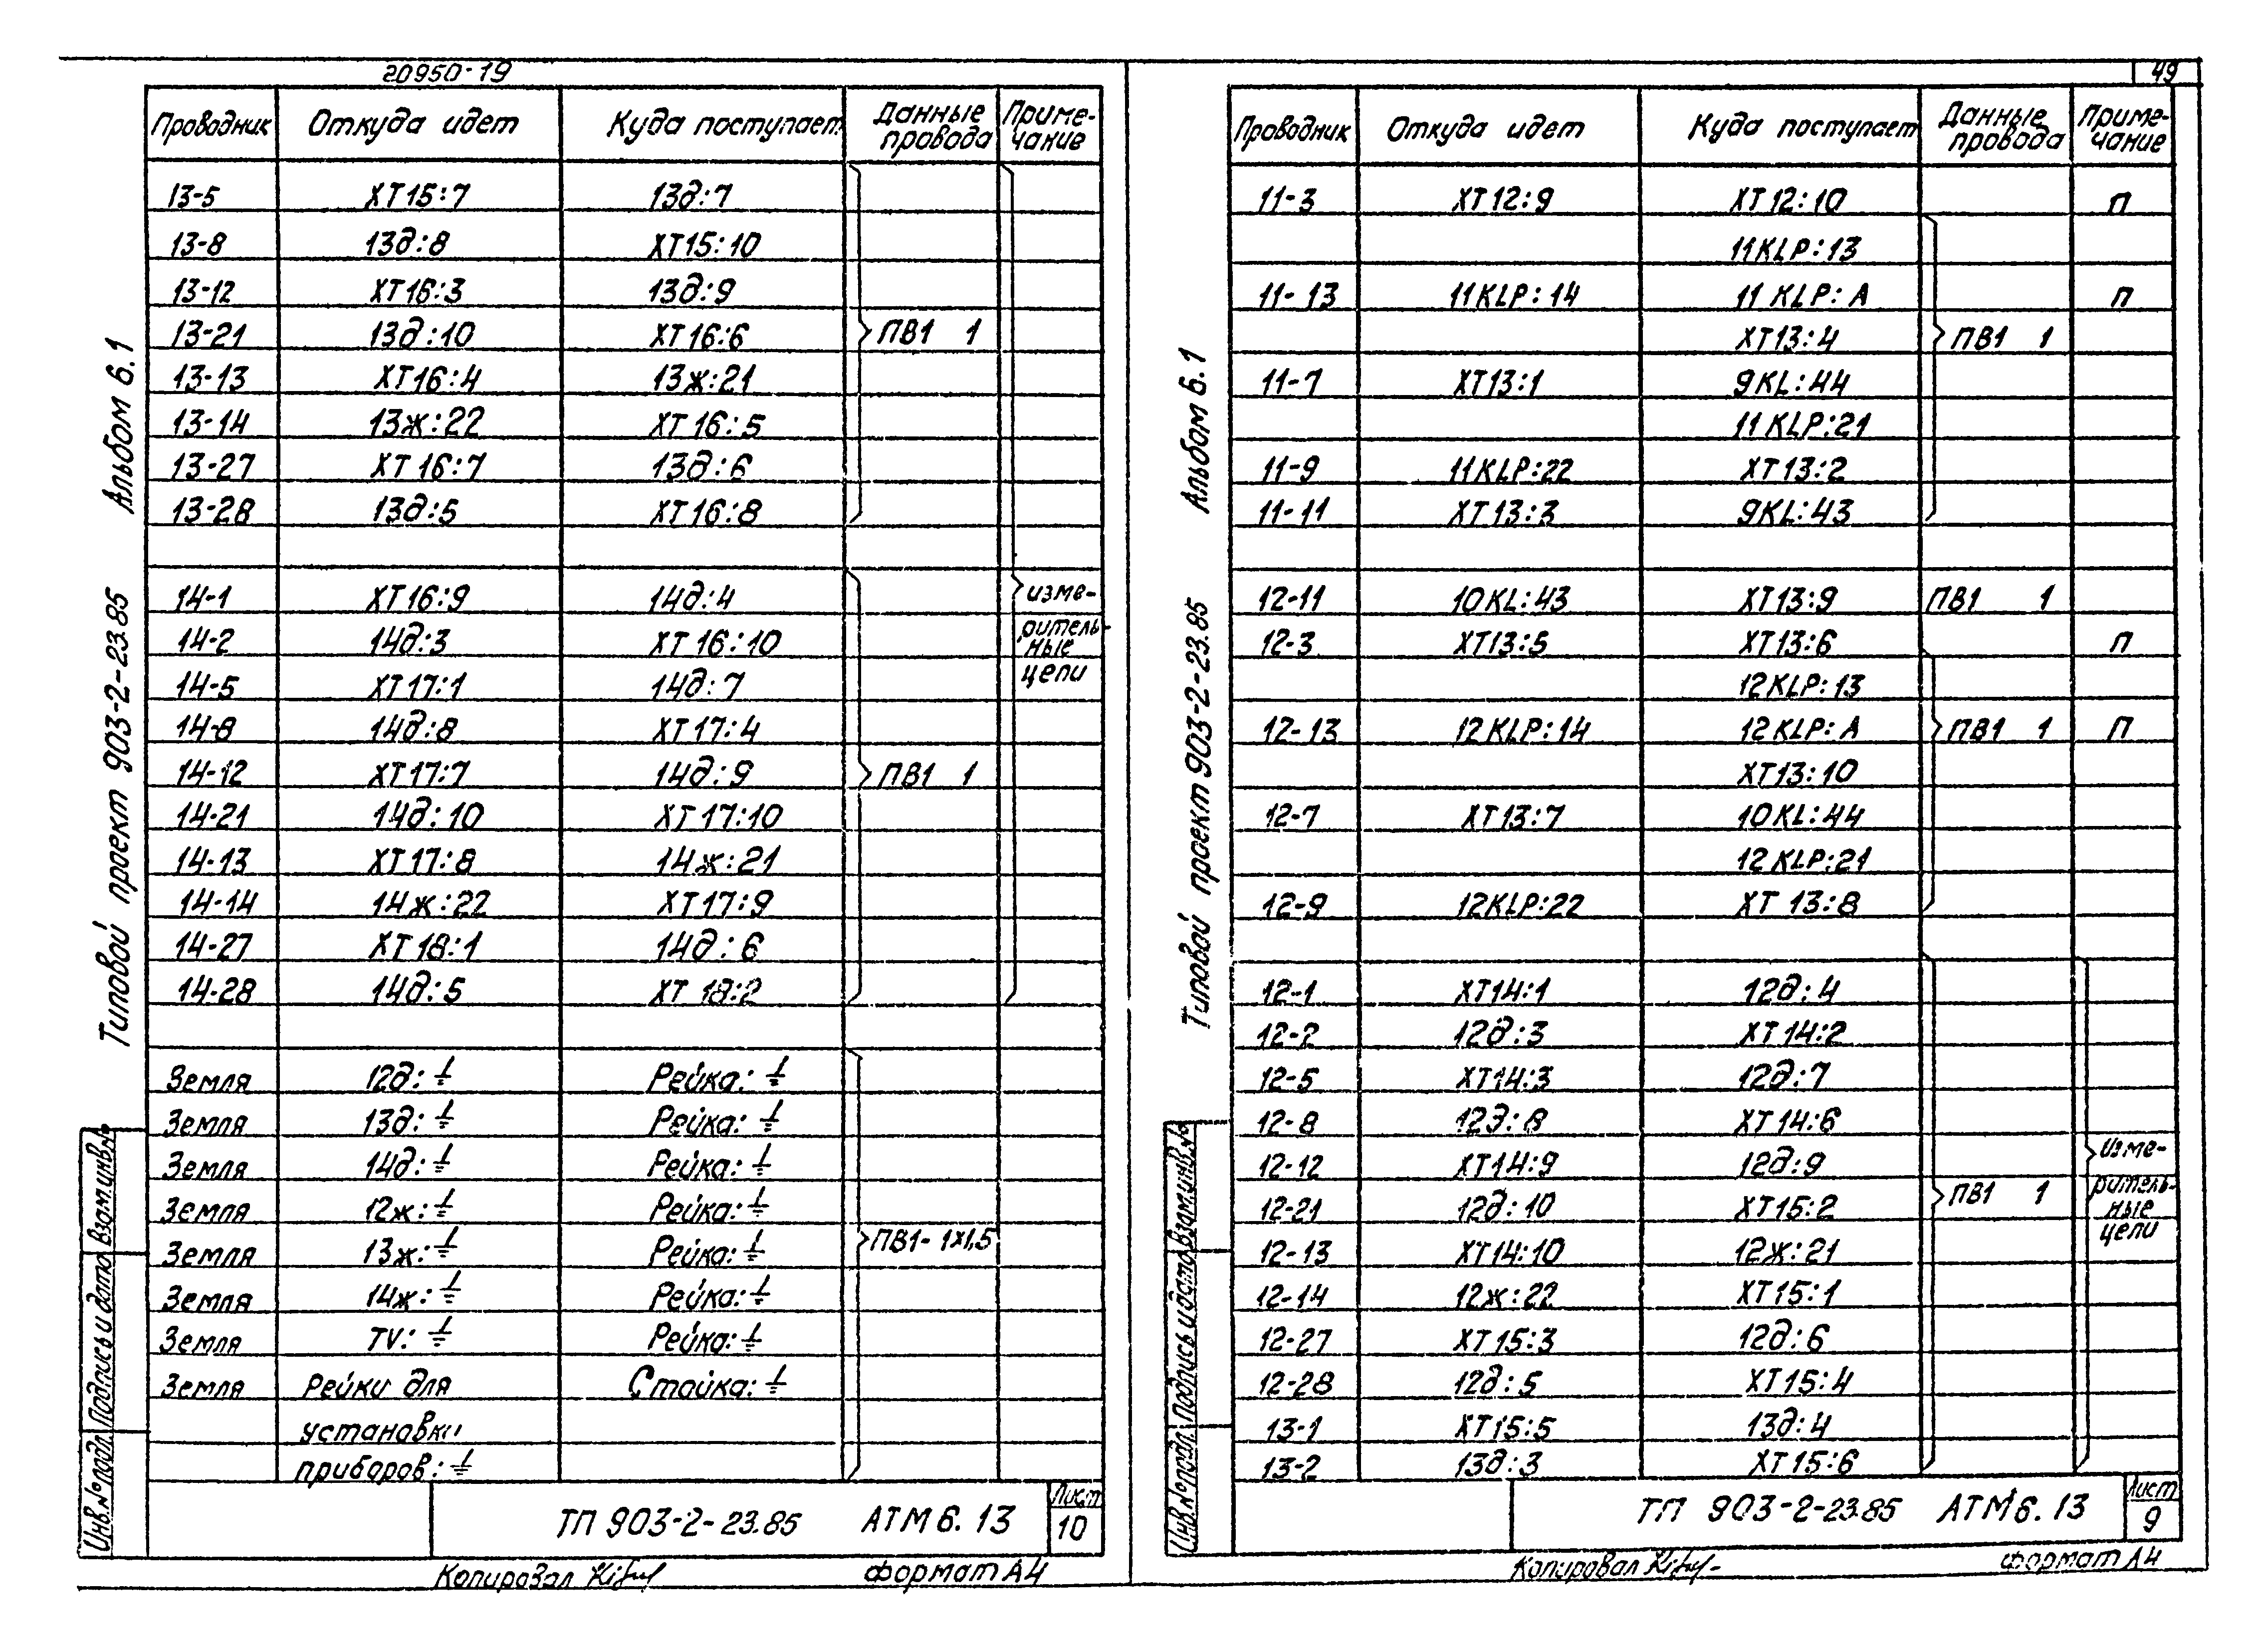 20950-19
49
Альбом 6.1
Типовой проект 903-2-23.85
Проводник Откуда идет Куда поступает Данные провода Примечание
13-5 XT15:7 13д:7
13-8 13д:8 XT15:10
13-12 XT16:3 13д:9
13-21 13д:10 XT16:6 ПВ1 1
13-13 XT16:4 13ж:21
13-14 13ж:22 XT16:5
13-27 XT16:7 13д:6
13-28 13д:5 XT16:8
14-1 XT16:9 14д:4 изме-
14-2 14д:3 XT16:10 ритель-
ные
14-5 XT17:1 14д:7 цепи
14-8 14д:8 XT17:4
14-12 XT17:7 14д:9 ПВ1 1
14-21 14д:10 XT17:10
14-13 XT17:8 14ж:21
14-14 14ж:22 XT17:9
14-27 XT18:1 14д:6
14-28 14д:5 XT18:2
Земля 12д:⏚ Рейка:⏚
Земля 13д:⏚ Рейка:⏚
Земля 14д:⏚ Рейка:⏚
Земля 12ж:⏚ Рейка:⏚
Земля 13ж:⏚ Рейка:⏚ ПВ1-1х1,5
Земля 14ж:⏚ Рейка:⏚
Земля TV:⏚ Рейка:⏚
Земля Рейки для Стойка:⏚
установки
приборов:⏚
Инв.№подл. Подпись и дата Взам.инв.№
ТП 903-2-23.85 АТМ6.13 Лист
10
Копировал формат А4
Альбом 6.1
Типовой проект 903-2-23.85
Проводник Откуда идет Куда поступает Данные провода Примечание
11-3 XT12:9 XT12:10 П
11KLP:13
11-13 11KLP:14 11KLP:A П
XT13:4 ПВ1 1
11-7 XT13:1 9KL:44
11KLP:21
11-9 11KLP:22 XT13:2
11-11 XT13:3 9KL:43
12-11 10KL:43 XT13:9 ПВ1 1
12-3 XT13:5 XT13:6 П
12KLP:13
12-13 12KLP:14 12KLP:A ПВ1 1 П
XT13:10
12-7 XT13:7 10KL:44
12KLP:21
12-9 12KLP:22 XT13:8
12-1 XT14:1 12д:4
12-2 12д:3 XT14:2
12-5 XT14:3 12д:7
12-8 12д:8 XT14:6
12-12 XT14:9 12д:9 Изме-
12-21 12д:10 XT15:2 ПВ1 1 ритель-
ные
12-13 XT14:10 12ж:21 цепи
12-14 12ж:22 XT15:1
12-27 XT15:3 12д:6
12-28 12д:5 XT15:4
13-1 XT15:5 13д:4
13-2 13д:3 XT15:6
Инв.№подл. Подпись и дата Взам.инв.№
ТП 903-2-23.85 АТМ6.13 Лист
9
Копировал формат А4